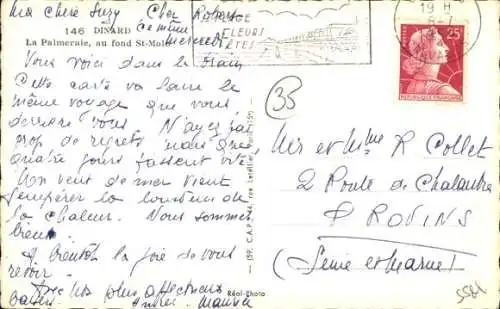 Ma chère Suzy Cher Robert
146 DINARD
La Palmeraie, au fond St-Malo
Ce même
mercredi
PLAGE
FLEURS
FÊTES
19 H
25
RÉPUBLIQUE FRANÇAISE
Vous voici dans le train
Cette carte va faire le
même voyage que vous,
derrière vous. N'ayez pas
trop de regrets mais que
quatre jours passent vite
Un vent de mer vient
tempérer la lourdeur de
la chaleur. Nous sommes
bien.
A bientôt la joie de vous
revoir
Avec nos plus affectueux
baisers. Maurice
33
Mr et Mme R Collet
2 Route de Chalautre
PROVINS
(Seine et Marne)
Réal-Photo
5581